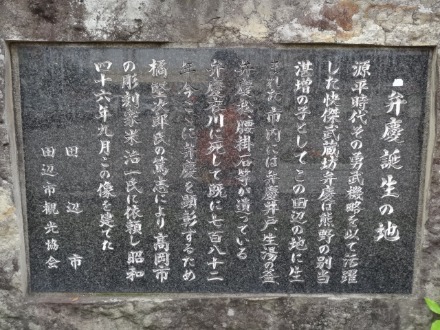 弁慶誕生の地
源平時代その勇武機略を以て活躍
した快傑武蔵坊弁慶は熊野の別当
湛増の子としてこの田辺の地に生
れた 市内には弁慶井戸生湯の釜
弁慶松 腰掛石等が遺っている
弁慶衣川に死して既に七百八十二
年 今ここに弁慶を顕彰するため
橘 次郎氏の篤志により 高岡市
の彫刻家米治一氏に依頼し昭和
四十六年九月この像を建てた
田辺市
田辺市観光協会